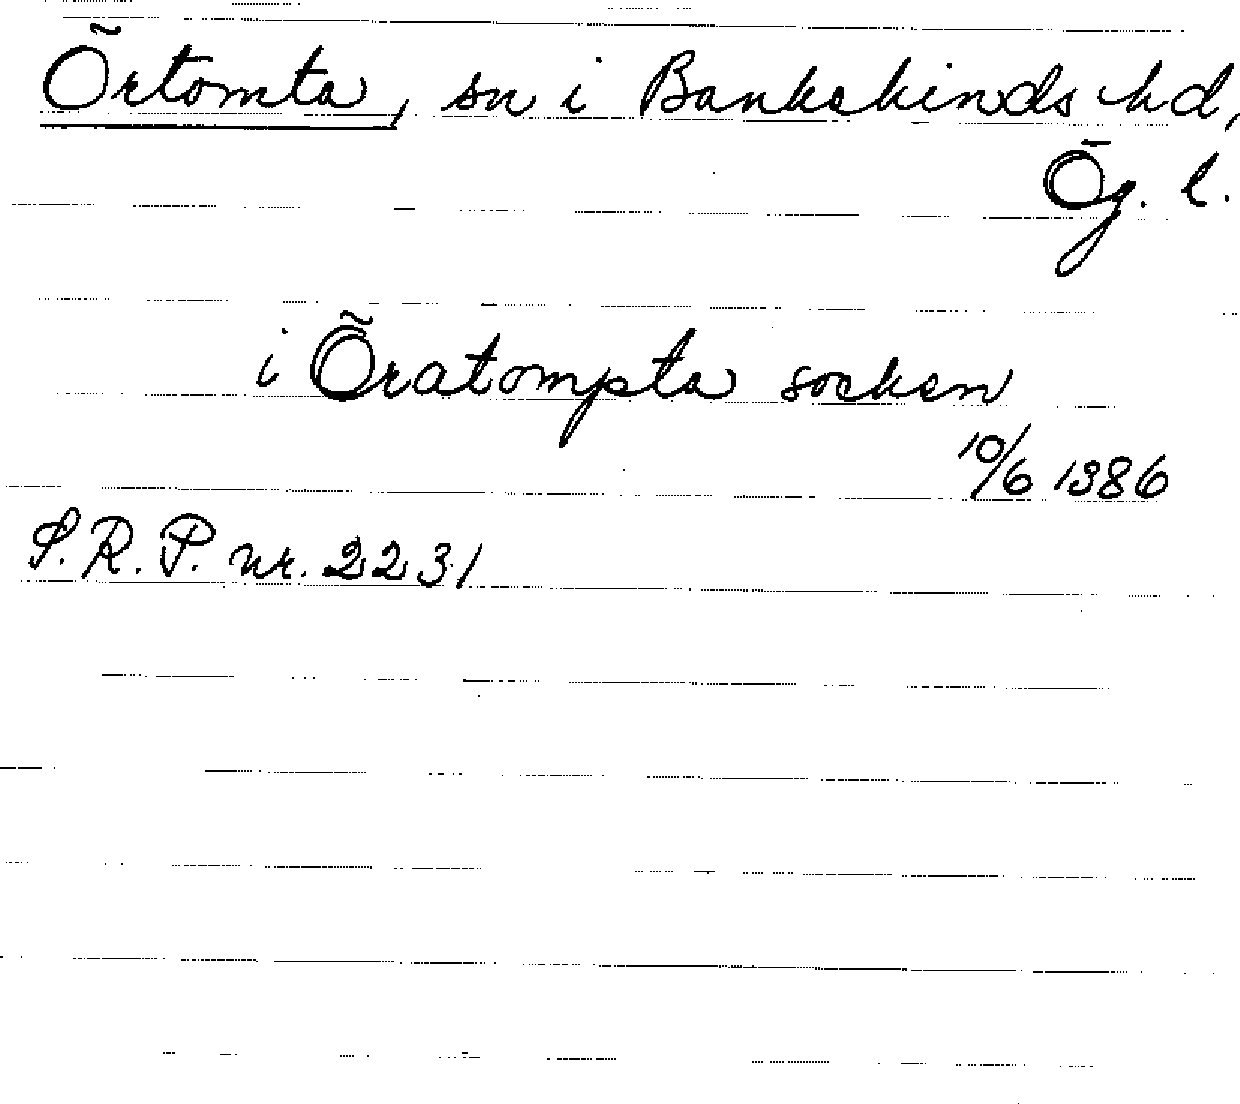 Örtomta, sn i Bankekinds hd,
Ög. l.
i Öratompta socken
10/6 1386
S.R.P. nr. 2231